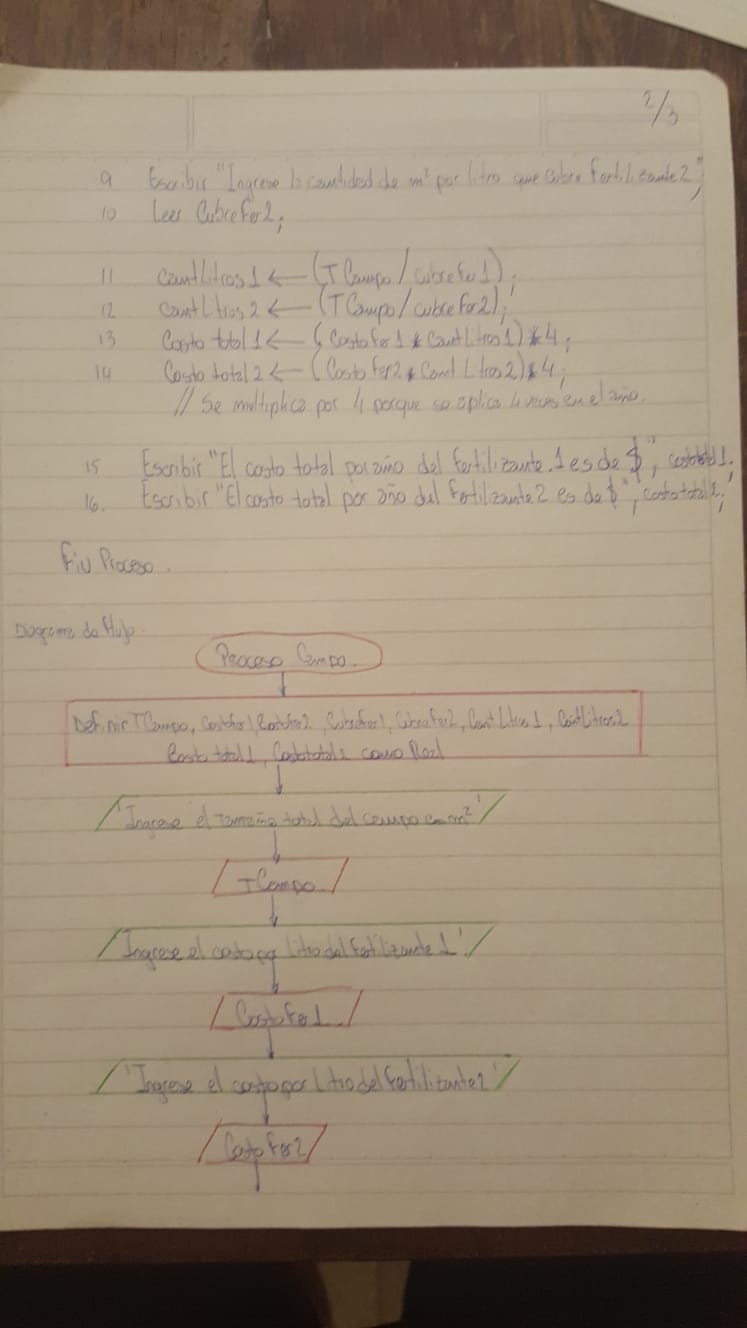 2/3
9 Escribir "Ingrese la cantidad de m² por litro que cubre fertilizante2";
10 Leer CubreFer2;
11 cantLitros1 ← (TCampo / cubrefer1);
12 cantLitros2 ← (TCampo/cubrefer2);
13 Costo total 1 ← (CostoFer1 * CantLitros1)*4;
14 Costo total 2 ← (Costo Fer2 * Cant Litros2)*4;
// Se multiplica por 4 porque se aplica 4 veces en el año.
15 Escribir "El costo total por año del fertilizante.1 es de $", costototal1;
16. Escribir "El costo total por año del fertilizante2 es de $", costototal2;
Fin Proceso.
Diagrama de Flujo.
Proceso Campo.
Definir TCampo, Costofer1, Costofer2, Cubrefer1, Cubrefer2, CantLitros1, CantLitros2
Costo total1, Costototal2 como Real
'Ingrese el Tamaño total del campo en m²'
TCampo.
'Ingrese el costo por litro del fertilizante 1'
CostoFer1.
'Ingrese el costo por litro del fertilizante2'
CostoFer2